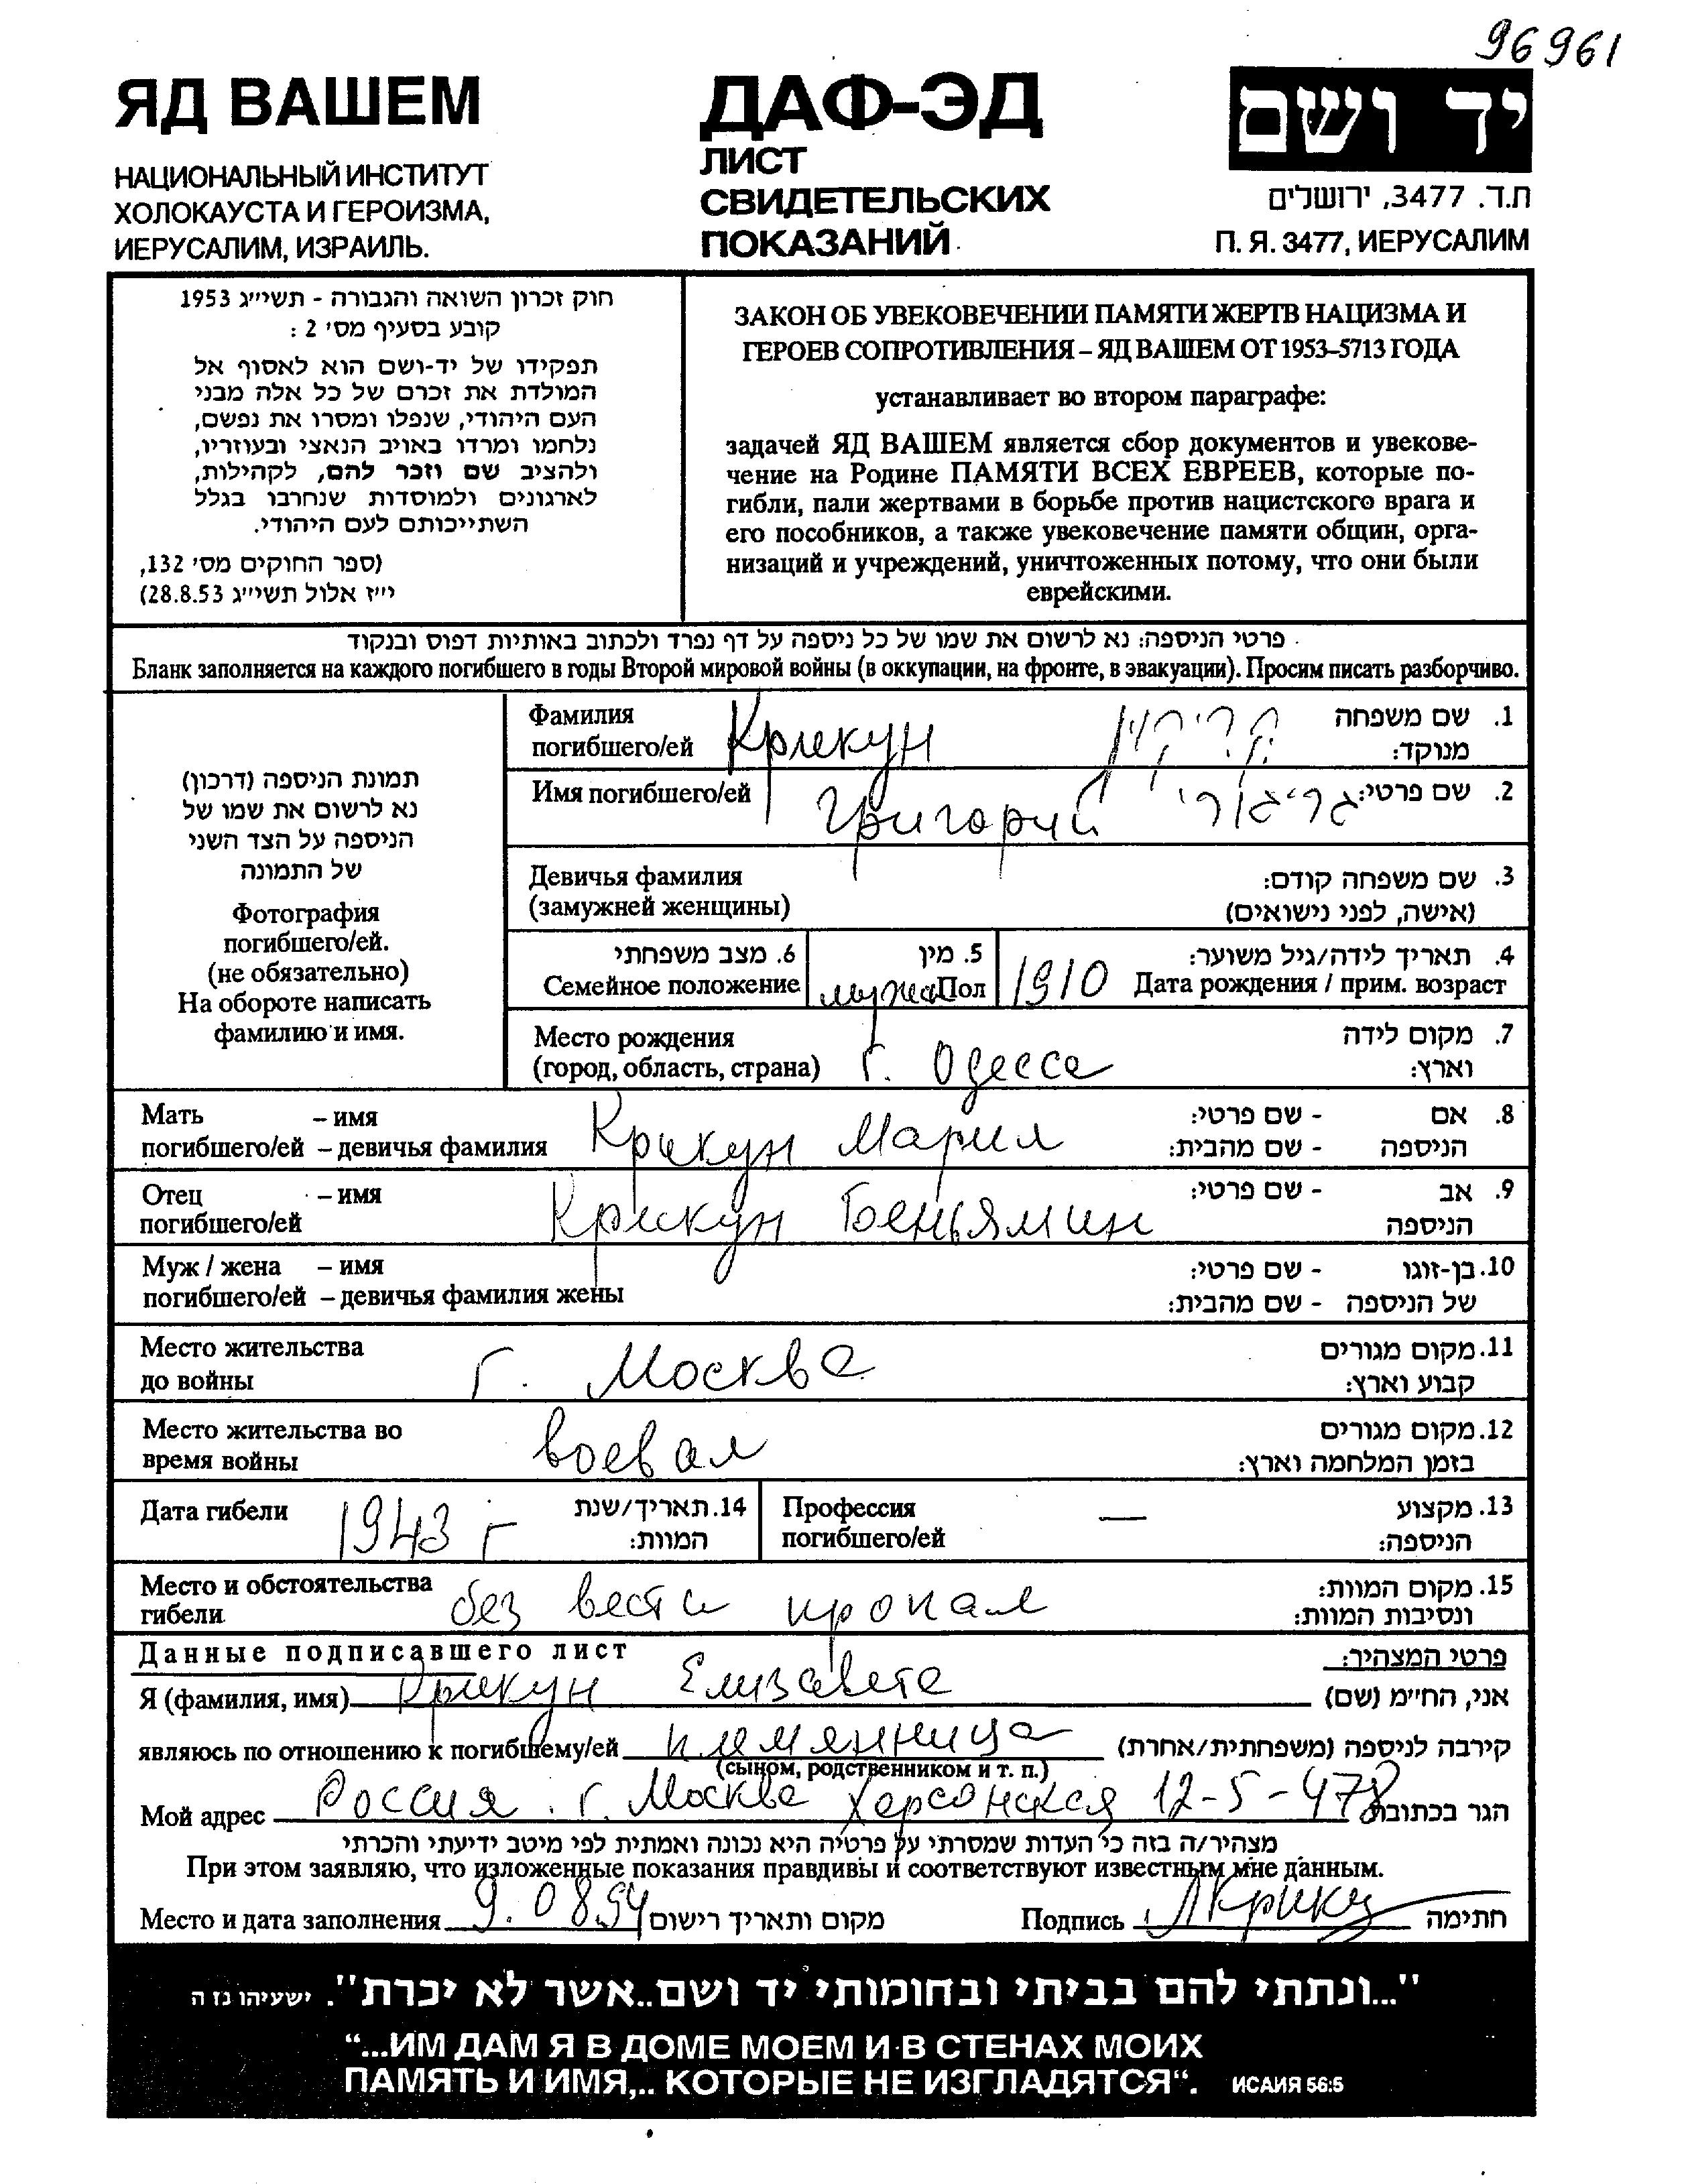 96961
ЯД ВАШЕМ
НАЦИОНАЛЬНЫЙ ИНСТИТУТ
ХОЛОКАУСТА И ГЕРОИЗМА,
ИЕРУСАЛИМ, ИЗРАИЛЬ.
ДАФ-ЭД
ЛИСТ
СВИДЕТЕЛЬСКИХ
ПОКАЗАНИЙ
יד ושם
ת.ד. 3477, ירושלים
П. Я. 3477, ИЕРУСАЛИМ
חוק זכרון השואה והגבורה - תשי״ג 1953
קובע בסעיף מס׳ 2 :
תפקידו של יד-ושם הוא לאסוף אל
המולדת את זכרם של כל אלה מבני
העם היהודי, שנפלו ומסרו את נפשם,
נלחמו ומרדו באויב הנאצי ובעוזריו,
ולהציב שם וזכר להם, לקהילות,
לארגונים ולמוסדות שנחרבו בגלל
השתייכותם לעם היהודי.
(ספר החוקים מס׳ 132,
י״ז אלול תשי״ג 28.8.53)
ЗАКОН ОБ УВЕКОВЕЧЕНИИ ПАМЯТИ ЖЕРТВ НАЦИЗМА И
ГЕРОЕВ СОПРОТИВЛЕНИЯ – ЯД ВАШЕМ ОТ 1953–5713 ГОДА
устанавливает во втором параграфе:
задачей ЯД ВАШЕМ является сбор документов и увекове-
чение на Родине ПАМЯТИ ВСЕХ ЕВРЕЕВ, которые по-
гибли, пали жертвами в борьбе против нацистского врага и
его пособников, а также увековечение памяти общин, орга-
низаций и учреждений, уничтоженных потому, что они были
еврейскими.
פרטי הניספה: נא לרשום את שמו של כל ניספה על דף נפרד ולכתוב באותיות דפוס ובנקוד
Бланк заполняется на каждого погибшего в годы Второй мировой войны (в оккупации, на фронте, в эвакуации). Просим писать разборчиво.
תמונת הניספה (דרכון)
נא לרשום את שמו של
הניספה על הצד השני
של התמונה
Фотография
погибшего/ей.
(не обязательно)
На обороте написать
фамилию и имя.
Фамилия
погибшего/ей Крикун קריקון 1. שם משפחה
מנוקד:
Имя погибшего/ей Григорий גריגורי 2. שם פרטי:
Девичья фамилия 3. שם משפחה קודם:
(замужней женщины) (אישה, לפני נישואים)
6. מצב משפחתי 5. מין 4. תאריך לידה/גיל משוער:
Семейное положение мужс Пол 1910 Дата рождения / прим. возраст
Место рождения 7. מקום לידה
(город, область, страна) г. Одесса וארץ:
Мать – имя - שם פרטי: 8. אם
погибшего/ей – девичья фамилия Крикун Мария - שם מהבית: הניספה
Отец – имя - שם פרטי: 9. אב
погибшего/ей Крикун Беньямин הניספה
Муж / жена – имя - שם פרטי: 10. בן-זוגו
погибшего/ей – девичья фамилия жены - שם מהבית: של הניספה
Место жительства 11. מקום מגורים
до войны г. Москва קבוע וארץ:
Место жительства во 12. מקום מגורים
время войны воевал בזמן המלחמה וארץ:
Дата гибели 1943 г 14. תאריך/שנת
המוות:
Профессия — 13. מקצוע
погибшего/ей הניספה:
Место и обстоятельства 15. מקום המוות:
гибели без вести пропал ונסיבות המוות:
Данные подписавшего лист פרטי המצהיר:
Я (фамилия, имя) Крикун Елизавета אני, הח״מ (שם)
являюсь по отношению к погибшему/ей племянница קירבה לניספה (משפחתית/אחרת)
(сыном, родственником и т. п.)
Мой адрес Россия. г. Москва Херсонская 12-5-478 הגר בכתובת
מצהיר/ה בזה כי העדות שמסרתי על פרטיה היא נכונה ואמתית לפי מיטב ידיעתי והכרתי
При этом заявляю, что изложенные показания правдивы и соответствуют известным мне данным.
Место и дата заполнения 9.08.94 מקום ותאריך רישום Подпись חתימה
"...ונתתי להם בביתי ובחומותי יד ושם..אשר לא יכרת". ישעיהו נז ה
“...ИМ ДАМ Я В ДОМЕ МОЕМ И В СТЕНАХ МОИХ
ПАМЯТЬ И ИМЯ,.. КОТОРЫЕ НЕ ИЗГЛАДЯТСЯ“. ИСАИЯ 56:5